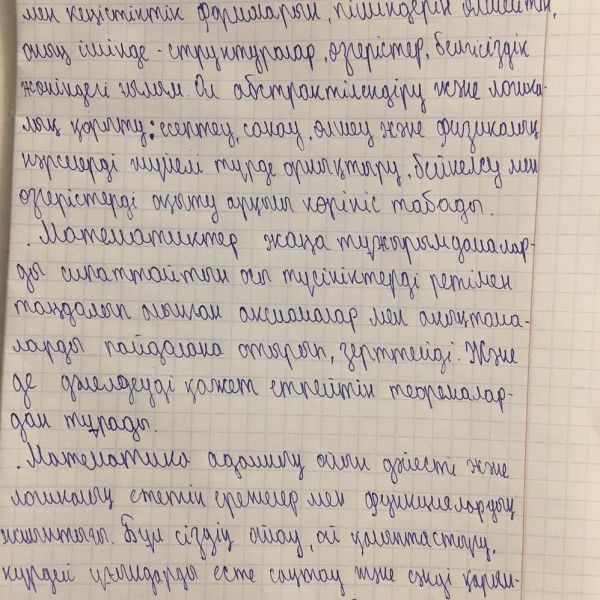 мен кеңістіктік формаларын, пішіндерін өлшейтін,
оның ішінде - структуралар, өзгерістер, белгісіздік
жөніндегі ғылым. Ол абстрактілендіру және логика-
лық қорыту; есептеу, санау, өлшеу және физикалық
нәрселерді жүйелі түрде орнықтыру, бейнелеу мен
өзгерістерді оқыту арқылы көрініс табады.
Математиктер жаңа тұжырымдамалар-
ды сипаттайтын осы түсініктерді ретімен
таңдалып алынған аксиомалар мен анықтама-
ларды пайдалана отырып, зерттейді. Және
де дәлелдеуді қажет етпейтін теоремалар-
дан тұрады.
Математика адамның ойын дәйекті және
логикалық ететін ережелер мен функциялардың
жиынтығы. Бұл сіздің ойлау, ой қалыптастыру,
күрделі ұғымдарды есте сақтау және сізді қорша-